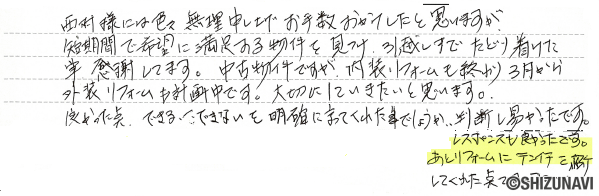 西村様には色々無理申し上げお手数おかけしたと思いますが
短期間で希望に満足する物件を見つけ引越しまでたどり着けた
事感謝してます。中古物件ですが、内装リフォームも終り3月から
外装リフォームも計画中です。大切にしていきたいと思います。
良かった点、できる、できないを明確に言ってくれた事でしょうか、判断し易かったです。
レスポンスも良かったです。
あとリフォームに
してくれた点で
©SHIZUNAVI